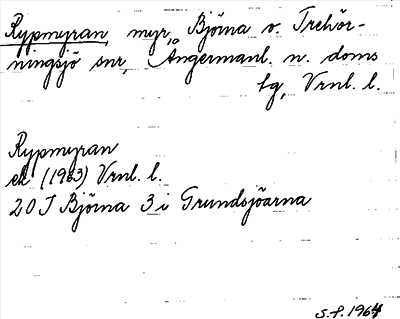 Rypmyran, myr, Björna o. Trehör-
ningsjö snr, Ångermanl. n. doms
lg, Vrnl. l.
Rypmyran
ek (1963) Vrnl. l.
20 J Björna 3 i Grundsjöarna
S.F. 1964